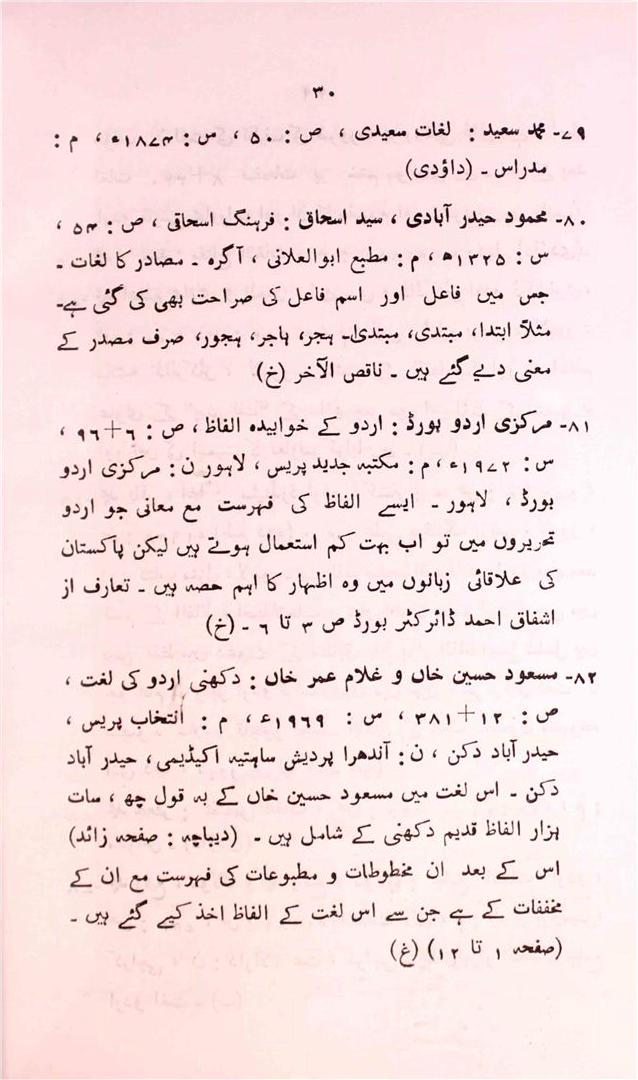 ۳۰
۷۹۔ محمد سعید : لغات سعیدی ، ص : ۵۰ ، س : ۱۸۷۴ء ، م :
مدراس ۔ (داؤدی)
۸۰۔ محمود حیدر آبادی ، سید اسحاق : فرہنگ اسحاقی ، ص : ۵۴ ،
س : ۱۳۲۵ھ ، م : مطبع ابوالعلائی ، آگرہ ۔ مصادر کا لغات ۔
جس میں فاعل اور اسم فاعل کی صراحت بھی کی گئی ہے۔
مثلاً ابتدا، مبتدی، مبتدیٰ۔ ہجر، ہاجر، ہجور، صرف مصدر کے
معنی دیے گئے ہیں ۔ ناقص الآخر (خ)
۸۱۔ مرکزی اردو بورڈ : اردو کے خوابیدہ الفاظ ، ص : ۶+۹۶ ،
س : ۱۹۷۲ء ، م : مکتبہ جدید پریس ، لاہور ن : مرکزی اردو
بورڈ ، لاہور ۔ ایسے الفاظ کی فہرست مع معانی جو اردو
تحریروں میں تو اب بہت کم استعمال ہوتے ہیں لیکن پاکستان
کی علاقائی زبانوں میں وہ اظہار کا اہم حصہ ہیں ۔ تعارف از
اشفاق احمد ڈائرکٹر بورڈ ص ۳ تا ۶ ۔ (خ)
۸۲۔ مسعود حسین خاں و غلام عمر خاں : دکھنی اردو کی لغت ،
ص : ۱۲+۳۸۱ ، س : ۱۹۶۹ء ، م : انتخاب پریس ،
حیدر آباد دکن ، ن : آندھرا پردیش ساہتیہ اکیڈیمی ، حیدر آباد
دکن ۔ اس لغت میں مسعود حسین خاں کے بہ قول چھ ، سات
ہزار الفاظ قدیم دکھنی کے شامل ہیں ۔ (دیباچہ : صفحہ زائد)
اس کے بعد ان مخطوطات و مطبوعات کی فہرست مع ان کے
مخففات کے ہے جن سے اس لغت کے الفاظ اخذ کیے گئے ہیں ۔
(صفحہ ۱ تا ۱۲) (غ)